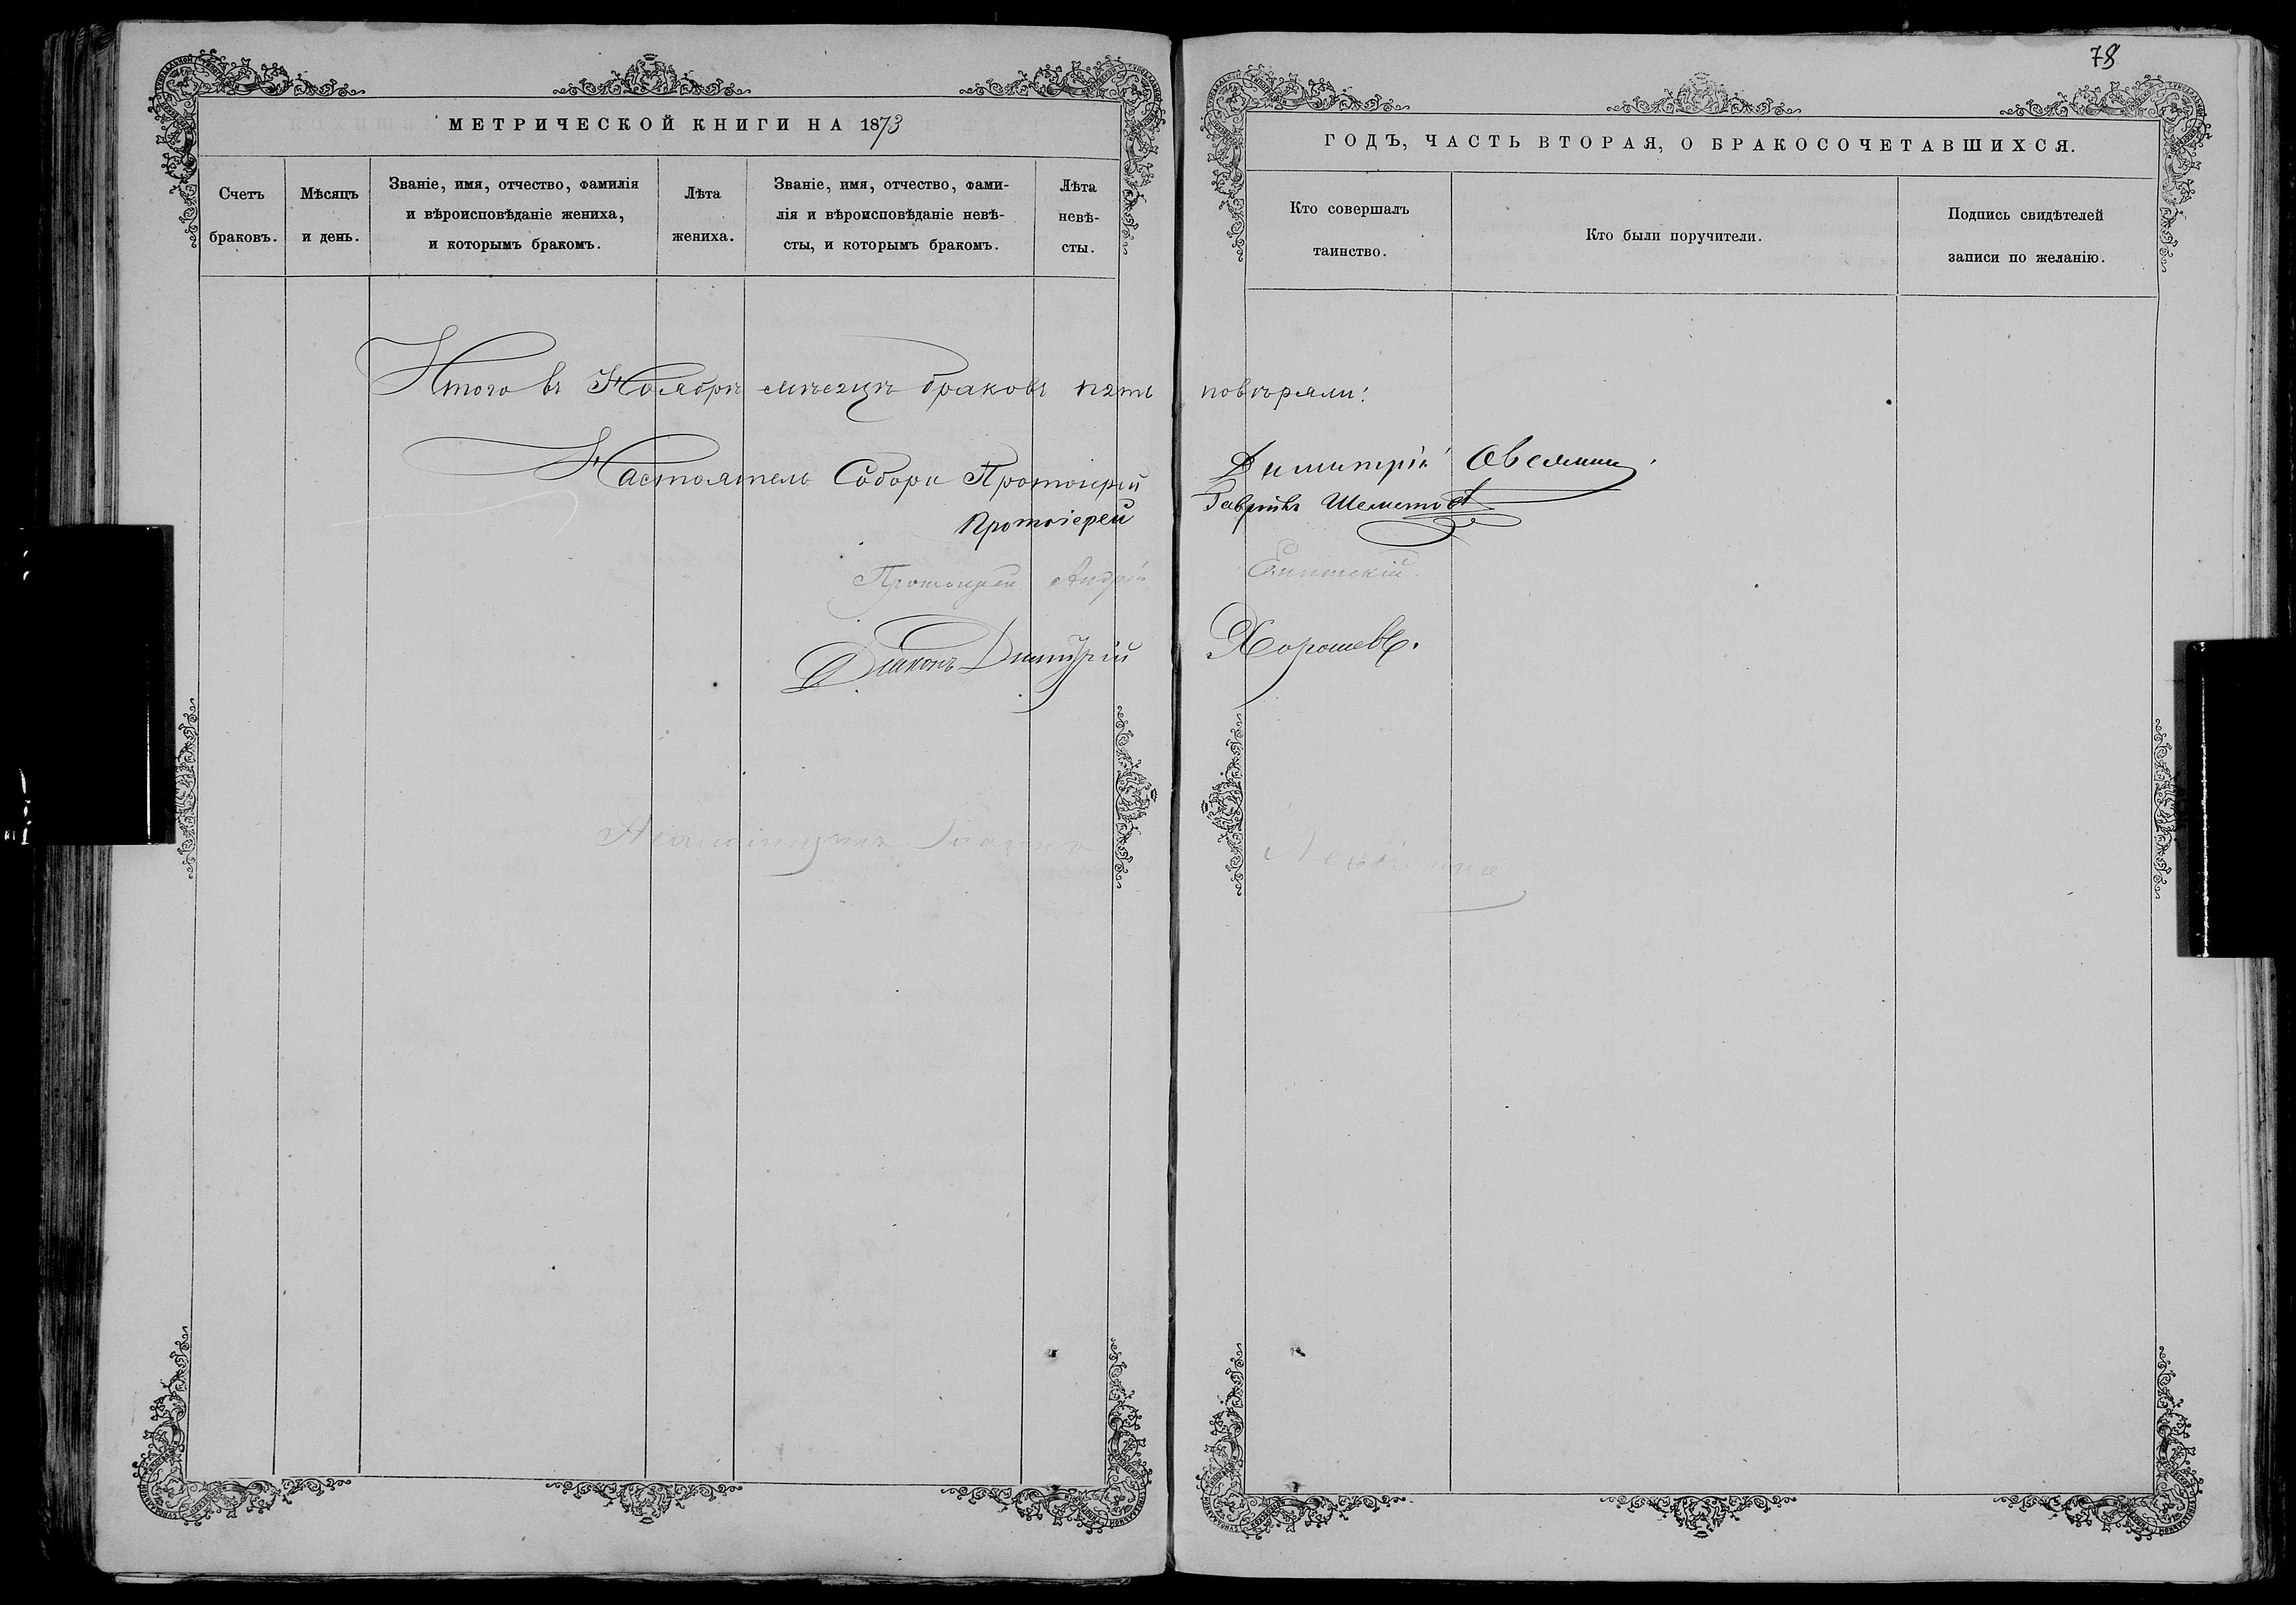 78
МЕТРИЧЕСКОЙ КНИГИ НА 1873
ГОДЪ, ЧАСТЬ ВТОРАЯ, О БРАКОСОЧЕТАВШИХСЯ.
Счетъ
браковъ.
Мѣсяцъ
и день.
Званіе, имя, отчество, фамилія
и вѣроисповѣданіе жениха,
и которымъ бракомъ.
Лѣта
жениха.
Званіе, имя, отчество, фами-
лія и вѣроисповѣданіе невѣ-
сты, и которымъ бракомъ.
Лѣта
невѣ-
сты.
Кто совершалъ
таинство.
Кто были поручители.
Подпись свидѣтелей
записи по желанію.
Итого въ Ноябрѣ мѣсяцѣ браковъ пять повѣряли:
Настоятель Собора Протоіерей Димитрій
Протоіерей Гавріилъ Шеметовъ
Протоіерей Андрей
Діаконъ Димитрій Хорошевъ.